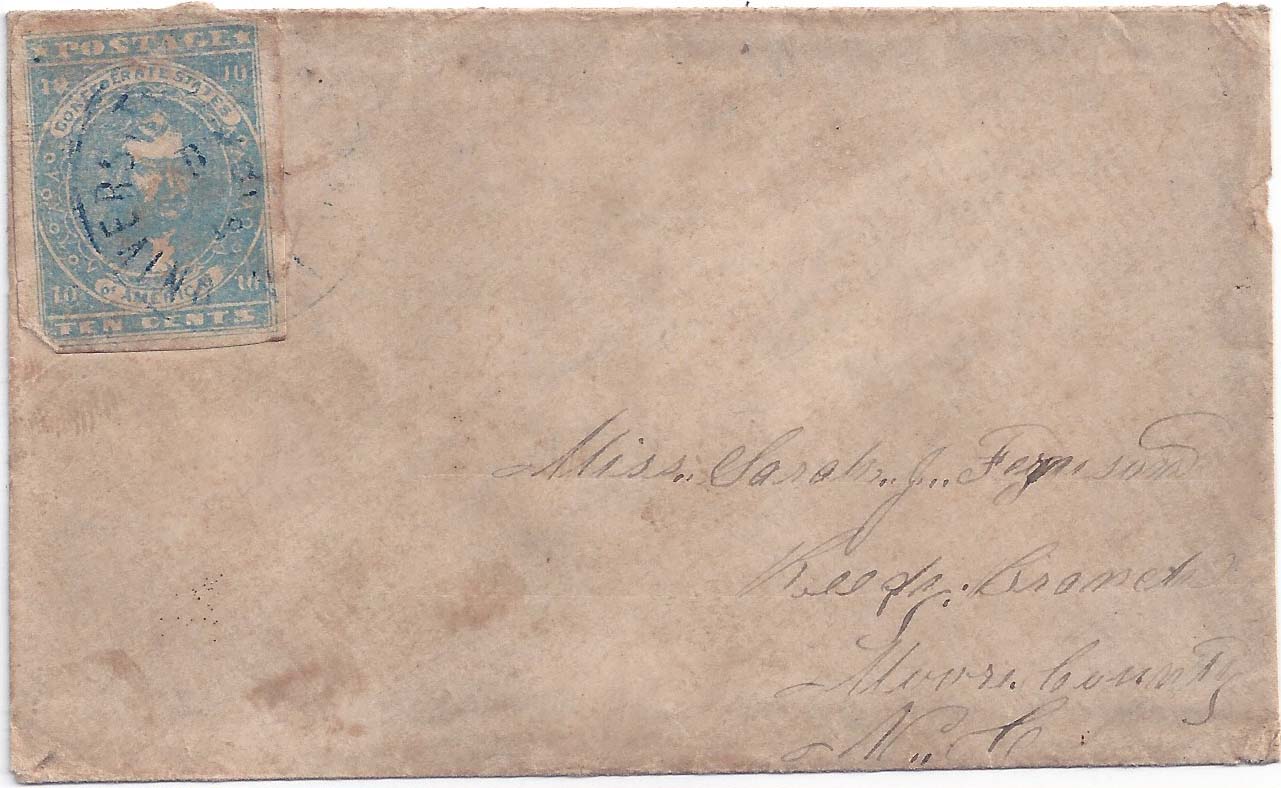 POSTAGE
10 10
CONFEDERATE STATES
OF AMERICA
10 10
TEN CENTS
Miss. Sarah. J. Ferguson
Reedy. Branch
Moore. County
N. C